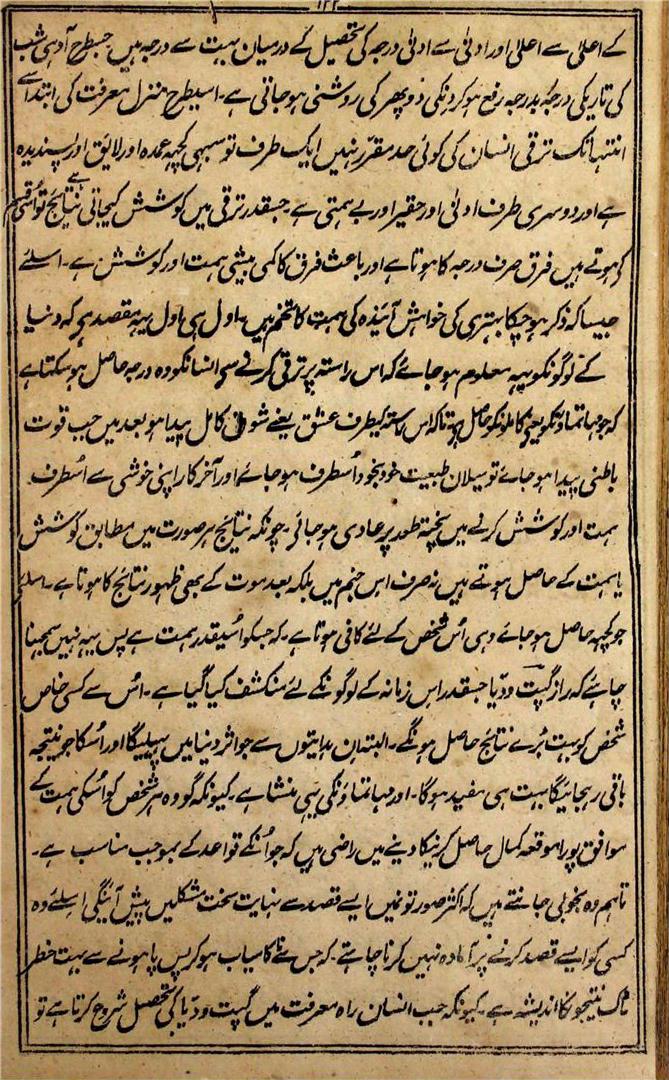 ۱۲۲
کے اعلیٰ سے اعلیٰ اور ادنیٰ سے ادنیٰ درجہ کی تحصیل کے درمیان بہت سے درجہ ہیں جسطرح آدہی شب
کی تاریکی درجہ بدرجہ رفع ہوکر دنکی دوپہر کی روشنی ہوجاتی ہے۔ اسیطرح منزل معرفت کی ابتدا سے
انتہا تک ترقی انسان کی کوئی حد مقرر نہیں ایک طرف تو سبہی کچہہ عمدہ اور لایق اور پسندیدہ
ہے اور دوسری طرف ادنیٰ اور حقیر اور بے ہمتی ہے۔ جسقدر ترقی میں کوشش کیجاتی ہے نتایج تو اُسی قسم
کے ہوتے ہیں فرق صرف درجہ کا ہوتا ہے اور باعث فرق کا کمی بیشی ہمت اور کوشش ہے۔ اسلئے
جیسا کہ ذکر ہوچکا بہتری کی خواہش آئیندہ کی ہمت کا تخم ہیں۔ اول ہی اول یہہ مقصد ہے کہ دنیا
کے لوگونکو یہہ معلوم ہوجائے کہ اس راستہ پر ترقی کرنے سے انسانکو وہ درجہ حاصل ہوسکتا ہے
کہ جو مہاتماؤنکو یعنی کاملونکو حاصل ہے تاکہ اس راستہ کیطرف عشق یعنے شوق کامل پیدا ہو بعد میں جب قوت
باطنی پیدا ہوجاے تو میلان طبیعت خود بخود اُسطرف ہوجاے اور آخر کار اپنی خوشی سے اُسطرف
ہمت اور کوشش کرنے میں پختہ طور پر عادی ہوجائے۔ چونکہ نتایج ہر صورت میں مطابق کوشش
یا ہمت کے حاصل ہوتے ہیں نہ صرف اس جنم میں بلکہ بعد موت کے بھی ظہور نتایج کا ہوتا ہے۔ اسلئے
جو کچہہ حاصل ہوجاے وہی اُس شخص کے لئے کافی ہوتا ہے۔ کہ جسکو اُسیقدر ہمت ہے پس یہہ نہیں سمجہنا
چاہئے کہ راز گپت ودّیا جسقدر اس زمانہ کے لوگونکے لئے منکشف کیا گیا ہے۔ اُس سے کسی خاص
شخص کو بہت بُرے نتایج حاصل ہونگے۔ البتہ ان ہدایتوں سے جو اثر دنیا میں پہیلیگا اور اُسکا جو نتیجہ
باقی رہجائیگا بہت ہی مفید ہوگا۔ اور مہاتماؤنکی یہی منشا ہے۔ کیونکہ گو وہ ہر شخص کو اُسکی ہمت کے
موافق پورا موقعہ کمال حاصل کرنیکا دینے میں راضی ہیں کہ جو اُنکے قواعد کے بموجب مناسب ہے۔
تاہم وہ بخوبی جانتے ہیں کہ اکثر صورتونمیں ایسے قصد سے نہایت سخت مشکلیں پیش آئینگی اسلئے وہ
کسی کو ایسے قصد کرنے پر آمادہ نہیں کرنا چاہتے۔ کہ جس سے ناکامیاب ہوکر پس پا ہونے سے بہت خطر
ناک نتیجونکا اندیشہ ہے۔ کیونکہ جب انسان راہ معرفت میں گپت ودّیا کی تحصیل شروع کرتا ہے تو